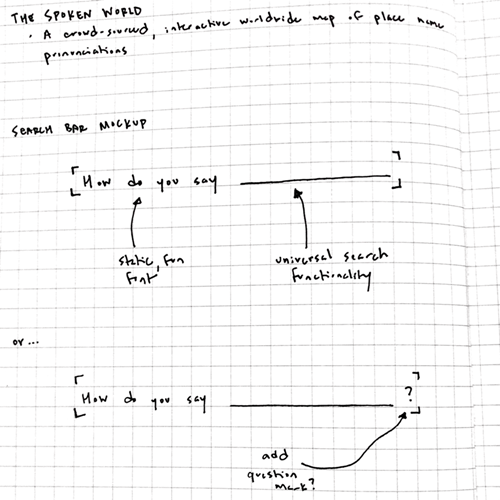 THE SPOKEN WORLD
· A crowd-sourced, interactive worldwide map of place name
pronunciations
SEARCH BAR MOCKUP
How do you say
static, fun
font
universal search
functionality
or...
How do you say ?
add
question
mark?